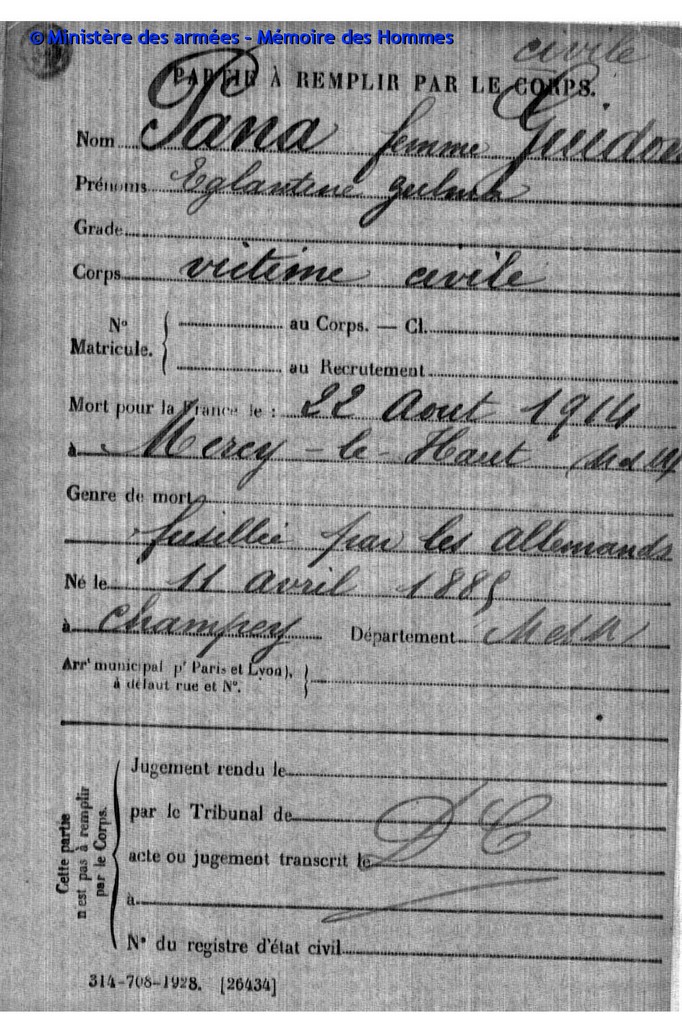 © Ministère des armées - Mémoire des Hommes
civile
PARTIE À REMPLIR PAR LE CORPS.
Nom Pana femme Guidon
Prénoms Eglantine
Grade
Corps victime civile
N° Matricule. au Corps. — Cl.
au Recrutement
Mort pour la France le : 22 Aout 1914
à Mercy-le-Haut M et M
Genre de mort
fusillée par les allemands
Né le 11 avril 1885
à Champey Département M et M
Arrt municipal pr Paris et Lyon),
à défaut rue et N°.
Cette partie n'est pas à remplir par le Corps.
Jugement rendu le
par le Tribunal de
acte ou jugement transcrit le
DC
à
N° du registre d'état civil
314-708-1928. [26434]